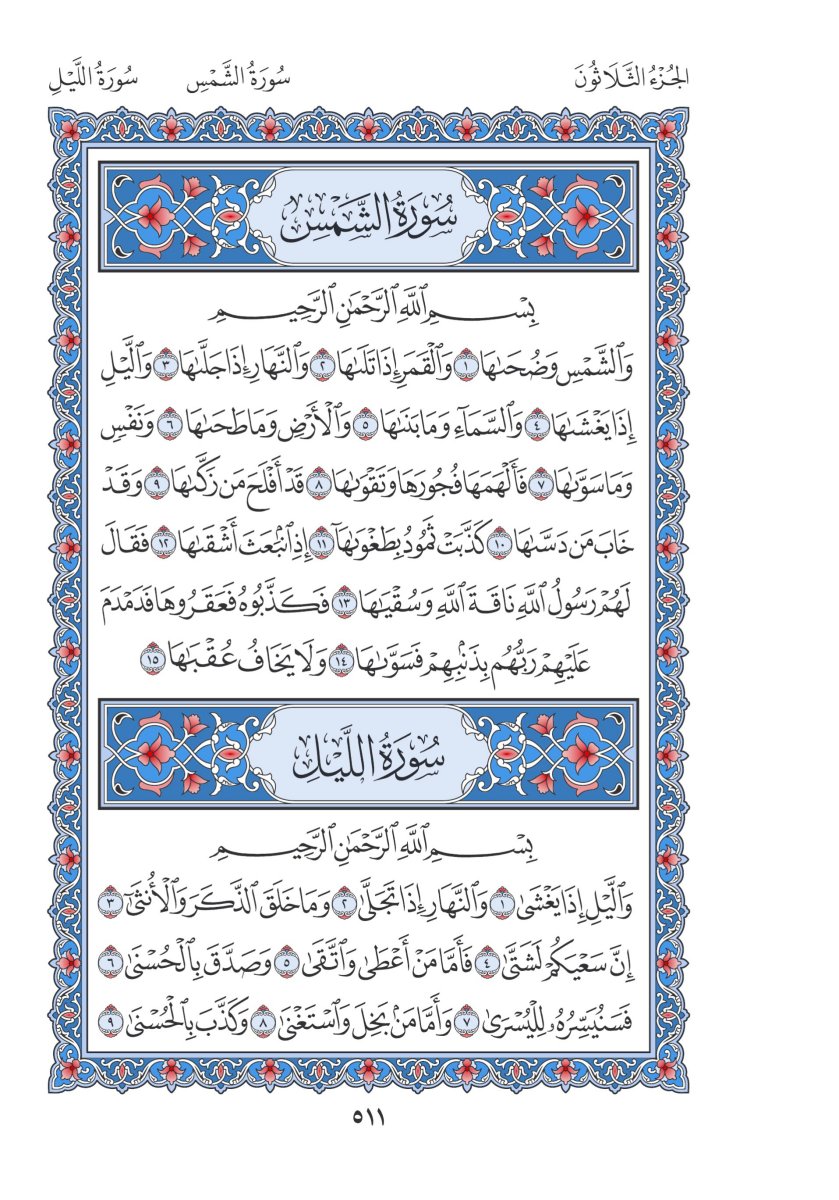 الجُزْءُ الثَّلَاثُونَ سُورَةُ الشَّمْسِ سُورَةُ اللَّيْلِ
سُورَةُ الشَّمْسِ
بِسْمِ ٱللَّهِ ٱلرَّحْمَٰنِ ٱلرَّحِيمِ
وَٱلشَّمْسِ وَضُحَىٰهَا ١ وَٱلْقَمَرِ إِذَا تَلَىٰهَا ٢ وَٱلنَّهَارِ إِذَا جَلَّىٰهَا ٣ وَٱلَّيْلِ
إِذَا يَغْشَىٰهَا ٤ وَٱلسَّمَآءِ وَمَا بَنَىٰهَا ٥ وَٱلْأَرْضِ وَمَا طَحَىٰهَا ٦ وَنَفْسٍ
وَمَا سَوَّىٰهَا ٧ فَأَلْهَمَهَا فُجُورَهَا وَتَقْوَىٰهَا ٨ قَدْ أَفْلَحَ مَن زَكَّىٰهَا ٩ وَقَدْ
خَابَ مَن دَسَّىٰهَا ١٠ كَذَّبَتْ ثَمُودُ بِطَغْوَىٰهَآ ١١ إِذِ ٱنۢبَعَثَ أَشْقَىٰهَا ١٢ فَقَالَ
لَهُمْ رَسُولُ ٱللَّهِ نَاقَةَ ٱللَّهِ وَسُقْيَٰهَا ١٣ فَكَذَّبُوهُ فَعَقَرُوهَا فَدَمْدَمَ
عَلَيْهِمْ رَبُّهُم بِذَنۢبِهِمْ فَسَوَّىٰهَا ١٤ وَلَا يَخَافُ عُقْبَٰهَا ١٥
سُورَةُ اللَّيْلِ
بِسْمِ ٱللَّهِ ٱلرَّحْمَٰنِ ٱلرَّحِيمِ
وَٱلَّيْلِ إِذَا يَغْشَىٰ ١ وَٱلنَّهَارِ إِذَا تَجَلَّىٰ ٢ وَمَا خَلَقَ ٱلذَّكَرَ وَٱلْأُنثَىٰٓ ٣
إِنَّ سَعْيَكُمْ لَشَتَّىٰ ٤ فَأَمَّا مَنْ أَعْطَىٰ وَٱتَّقَىٰ ٥ وَصَدَّقَ بِٱلْحُسْنَىٰ ٦
فَسَنُيَسِّرُهُۥ لِلْيُسْرَىٰ ٧ وَأَمَّا مَنۢ بَخِلَ وَٱسْتَغْنَىٰ ٨ وَكَذَّبَ بِٱلْحُسْنَىٰ ٩
٥١١